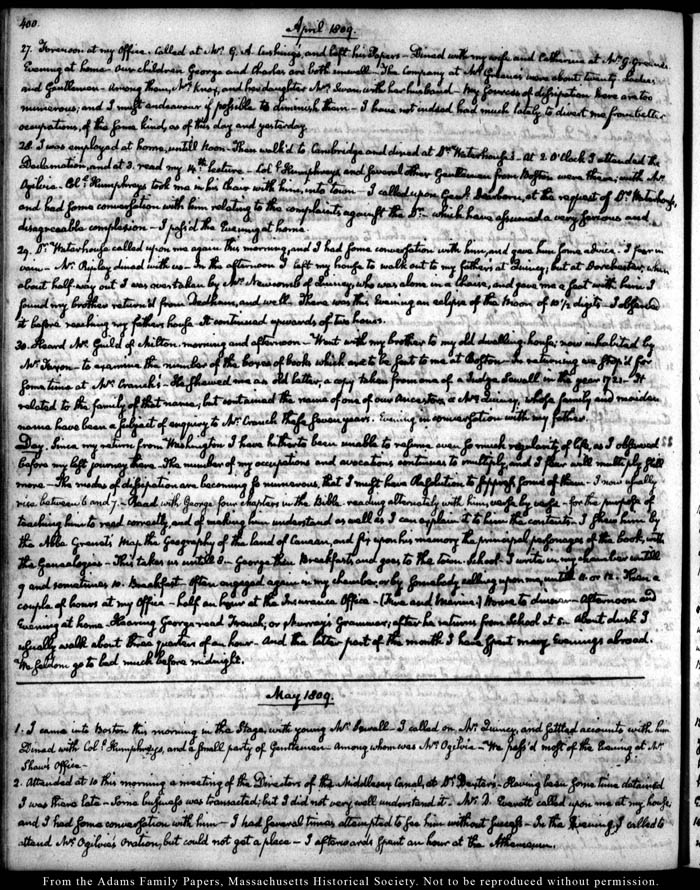 400.
April 1809.
27. Forenoon at my Office. Called at Mr. G. A. Cushing's, and left his Papers - Dined with my wife and Catherine at Mr. G. Greene's
Evening at home. Our children George and Charles are both unwell - The Company at Mr. Greene's were about twenty Ladies
and Gentlemen - Among them, Mrs. Knox, and her daughter Mrs. Swan with her husband - My sources of dissipation here are too
numerous; and I must endeavour if possible to diminish them - I have not indeed had much lately to divert me from better
occupations, of the same kind, as of this day and yesterday.
28. I was employed at home, untill Noon. Then walk'd to Cambridge and dined at Dr. Waterhouse's. At 2 O'Clock I attended the
Declamation, and at 3. read my 4th. lecture - Coll. Humphreys and several other Gentlemen from Boston were there; with Mr.
Ogilvie. Coll. Humphreys took me in his chair with him, into town - I called upon Genl. Dearborn, at the request of Dr. Waterhouse,
and had some conversation with him relating to the complaints against the Dr. which have assumed a very serious and
disagreeable complexion - I pass'd the Evening at home.
29. Dr. Waterhouse called upon me again this morning, and I had some conversation with him, and gave him some advice. I fear in
vain - Mr. Ripley dined with us - In the afternoon I left my house to walk out to my father's at Quincy; but at Dorchester, when
about half way out I was overtaken by Mr. Newcomb of Quincy, who was alone in a chaise, and gave me a seat with him. I
found my brother return'd from Dedham, and well. There was this Evening an eclipse of the Moon of 10 1/2 digits - I observed
it before reaching my father's house. It continued upwards of two hours.
30. Heard Mr. Guild of Milton. morning and afternoon - Went with my brother to my old dwelling house; now inhabited by
Mr. to examine the number of the boxes of books which are to be sent to me at Boston - In returning we stop'd for
some time at Mr. Cranch's - He shewed me an old letter; a copy taken from one of a Judge Sewall in the year 1721 - It
related to the family of that name; but contained the name of one of our Ancestors a Mrs. Quincy, whose family and maiden
name have been a subject of enquiry to Mr. Cranch these seven years. Evening in conversation with my father.
Day. Since my return from Washington I have hitherto been unable to resume even so much regularity of life, as I observed
before my last journey there. The number of my occupations and avocations continues to multiply, and I fear will multiply still
more - The modes of dissipation are becoming so numerous, that I must have Resolution to suppress some of them - I now usually
rise between 6 and 7. - Read with George four chapters in the Bible. reading alternately with him, verse by verse - for the purpose of
teaching him to read correctly, and of making him understand as well as I can explain it to him the contents. I shew him by
the Abbe Grenet's Map the Geography of the land of Canaan, and fix upon his memory the principal personages of the book, with
the Genealogies - This takes us untill 8 - George then Breakfasts, and goes to the town-School - I write in my chamber untill
9 and sometimes 10. Breakfast. Often engaged again in my chamber, or by somebody calling upon me, untill 11. or 12. Then a
couple of hours at my Office - half an hour at the Insurance Office - (Fire and Marine.) Home to dinner - Afternoon and
Evening at home. Hearing George read French, or Murray's Grammar; after he returns from School at 5. About dusk I
usually walk about three quarters of an hour - And the latter part of the month I have spent many Evenings abroad.
We seldom go to bed much before midnight.
May 1809.
1. I came into Boston this morning in the Stage, with young Mr. Sewall - I called on Mr. Quincy, and settled accounts with him
Dined with Coll. Humphreys, and a small party of Gentlemen - Among whom was Mr. Ogilvie - We pass'd most of the Evening at Mr.
Shaw's Office -
2. Attended at 10 this morning a meeting of the Directors of the Middlesex Canal, at Dr. Dexter's - Having been some time detained
I was there late - Some business was transacted; but I did not very well understand it. Mr. D. Everett called upon me at my house
and I had some conversation with him - I had several times attempted to see him without success - In the Evening, I called to
attend Mr. Ogilvie's Oration, but could not get a place - I afterwards spent an hour at the Athenaeum.
From the Adams Family Papers, Massachusetts Historical Society. Not to be reproduced without permission.